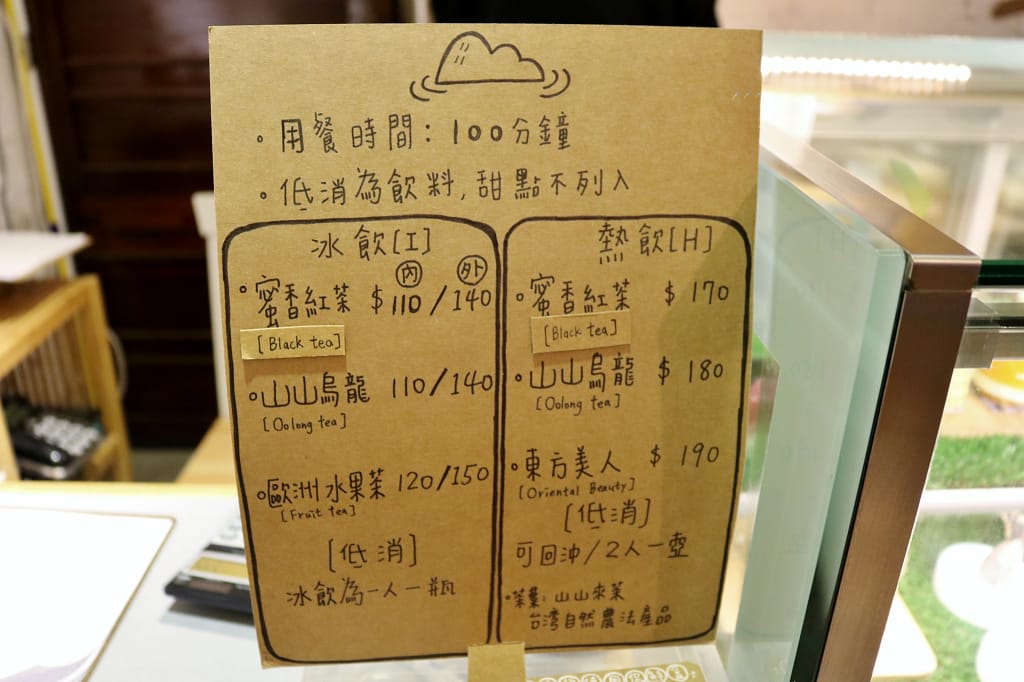 。用餐時間：100分鐘
。低消為飲料，甜點不列入
冰飲[I]
內 外
。蜜香紅茶 $110/140
[Black tea]
。山山烏龍 110/140
[Oolong tea]
。歐洲水果茶 120/150
[Fruit tea]
[低消]
冰飲為一人一瓶
熱飲[H]
。蜜香紅茶 $170
[Black tea]
。山山烏龍 $180
[Oolong tea]
。東方美人 $190
[Oriental Beauty]
[低消]
可回沖/2人一壺
•茶葉：山山來茶
台湾自然農法產品